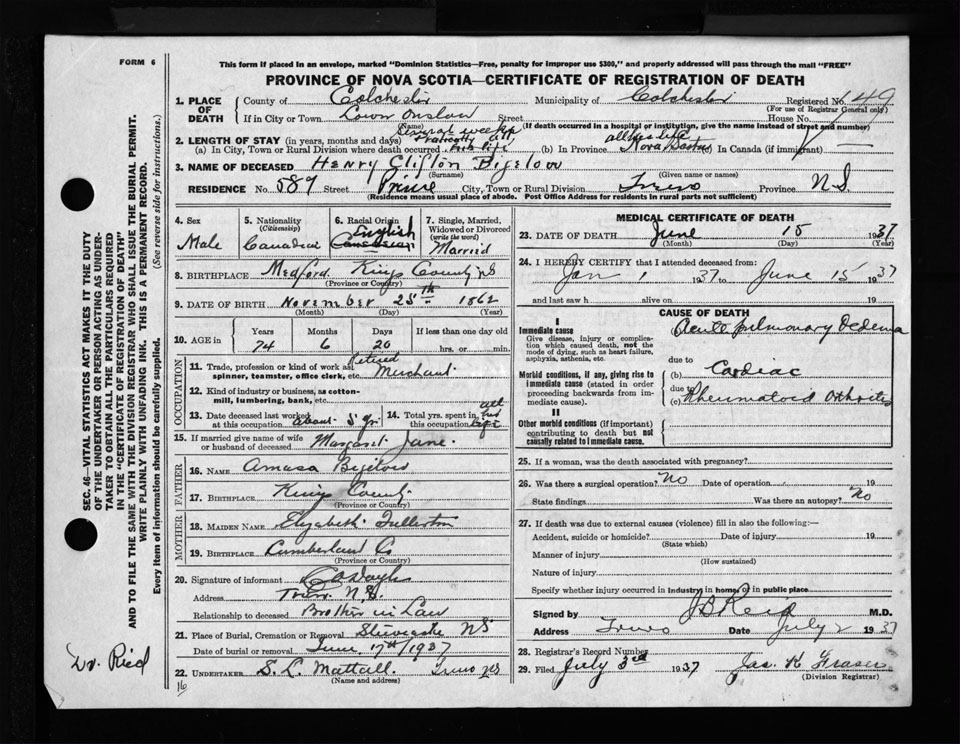 FORM 6
This form if placed in an envelope, marked "Dominion Statistics—Free, penalty for improper use $300," and properly addressed will pass through the mail "FREE"
PROVINCE OF NOVA SCOTIA—CERTIFICATE OF REGISTRATION OF DEATH
1. PLACE OF DEATH County of Colchester Municipality of Colchester Registered No. 149
(For use of Registrar General only)
If in City or Town Lower Onslow Street House No.
(Name) (If death occurred in a hospital or institution, give the name instead of street and number)
2. LENGTH OF STAY (in years, months and days) Several weeks
(a) In City, Town or Rural Division where death occurred Practically all his life (b) In Province all his life Nova Scotia In Canada (if immigrant) —
3. NAME OF DECEASED Henry Clifton Bigelow
(Surname) (Given name or names)
RESIDENCE No. 589 Street Prince City, Town or Rural Division Truro Province N.S.
(Residence means usual place of abode. Post Office Address for residents in rural parts not sufficient)
4. Sex Male
5. Nationality (Citizenship) Canadian
6. Racial Origin English Canadian
7. Single, Married, Widowed or Divorced (write the word) Married
8. BIRTHPLACE Medford Kings County NS
(Province or Country)
9. DATE OF BIRTH November 25th 1862
(Month) (Day) (Year)
10. AGE in Years 74 Months 6 Days 20 If less than one day old hrs. or min.
OCCUPATION
11. Trade, profession or kind of work as spinner, teamster, office clerk, etc. Retired Merchant
12. Kind of industry or business, as cotton-mill, lumbering, bank, etc.
13. Date deceased last worked at this occupation about 5 yr.
14. Total yrs. spent in this occupation all his life
15. If married give name of wife or husband of deceased Margaret Jane
FATHER
16. NAME Amasa Bigelow
17. BIRTHPLACE Kings County
(Province or Country)
MOTHER
18. MAIDEN NAME Elizabeth Fullerton
19. BIRTHPLACE Cumberland Co
(Province or Country)
20. Signature of informant
Address Truro N.S.
Relationship to deceased Brother in Law
21. Place of Burial, Cremation or Removal Stewiacke NS
Date of burial or removal June 17th/1937
22. UNDERTAKER S. L. Mattall Truro NS
(Name and address)
MEDICAL CERTIFICATE OF DEATH
23. DATE OF DEATH June 15 1937
(Month) (Day) (Year)
24. I HEREBY CERTIFY that I attended deceased from:
Jan 1 1937 to June 15 1937
and last saw h alive on 19
CAUSE OF DEATH
I
Immediate cause
Give disease, injury or complication which caused death, not the mode of dying, such as heart failure, asphyxia, asthenia, etc.
Acute pulmonary Oedema
due to
Morbid conditions, if any, giving rise to immediate cause (stated in order proceeding backwards from immediate cause).
(b) Cardiac
due to
(c) Rheumatoid Arthritis
II
Other morbid conditions (if important) contributing to death but not causally related to immediate cause.
25. If a woman, was the death associated with pregnancy?
26. Was there a surgical operation? No Date of operation 19
State findings Was there an autopsy? No
27. If death was due to external causes (violence) fill in also the following:—
Accident, suicide or homicide? Date of injury 19
(State which)
Manner of injury
(How sustained)
Nature of injury
Specify whether injury occurred in industry, in home, or in public place
Signed by J B Reid M.D.
Address Truro Date July 2 1937
28. Registrar's Record Number
29. Filed July 3rd 1937 Jas. K Fraser
(Division Registrar)
SEC. 46—VITAL STATISTICS ACT MAKES IT THE DUTY
OF THE UNDERTAKER OR PERSON ACTING AS UNDERTAKER TO OBTAIN ALL THE PARTICULARS REQUIRED
IN THE "CERTIFICATE OF REGISTRATION OF DEATH"
AND TO FILE THE SAME WITH THE DIVISION REGISTRAR WHO SHALL ISSUE THE BURIAL PERMIT.
WRITE PLAINLY WITH UNFADING INK. THIS IS A PERMANENT RECORD.
Every item of information should be carefully supplied. (See reverse side for instructions.)
Dr. Ried
16